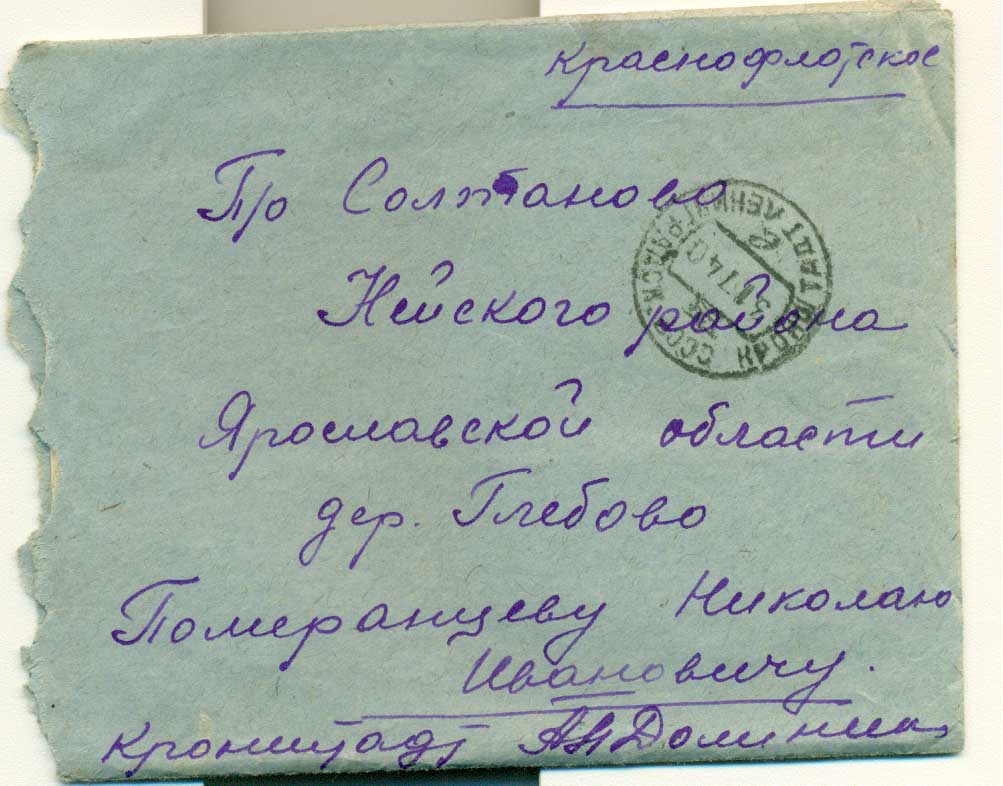 Краснофлотское
П/о Солтаново
Нейского района
Ярославской области
дер. Глебово
Померанцеву Николаю
Ивановичу.
Кронштадт
КРОНШТАДТ ЛЕНИНГРАДСК
СССР